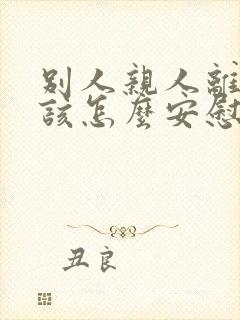 別人親人離
該怎麼安慰
丑良